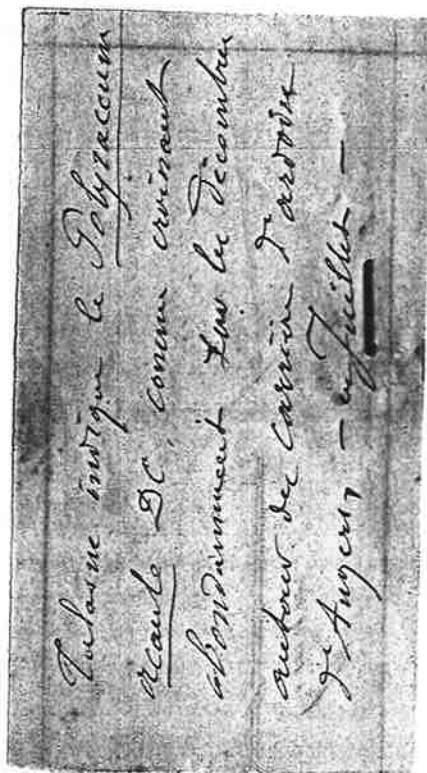 Tulasne indique le Polysaccum
acaule DC, comme croissant
abondamment sur les décombres
autour des carrières d'ardoise
d'Angers, – en Juillet –